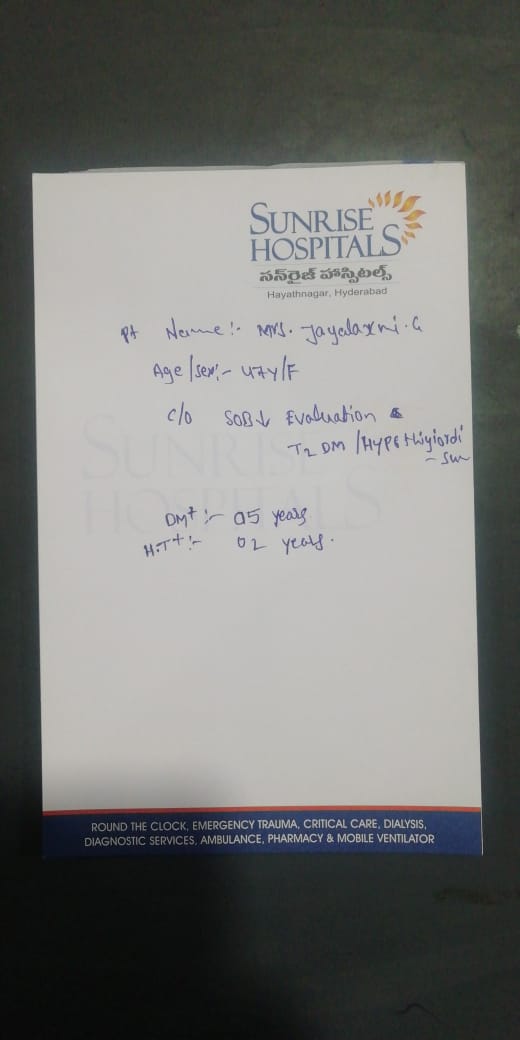 SUNRISE
HOSPITALS
సన్‌రైజ్ హాస్పిటల్స్
Hayathnagar, Hyderabad
Pt Name:- Mrs. Jayalaxmi. G
Age/Sex:- 47Y/F
C/O SOB↓ Evaluation
T2 DM /HYPOthiyiordi
-sm
SUNRISE
HOSPITALS
DM+ :- 05 years
H.T+ :- 02 years.
ROUND THE CLOCK, EMERGENCY TRAUMA, CRITICAL CARE, DIALYSIS,
DIAGNOSTIC SERVICES, AMBULANCE, PHARMACY & MOBILE VENTILATOR